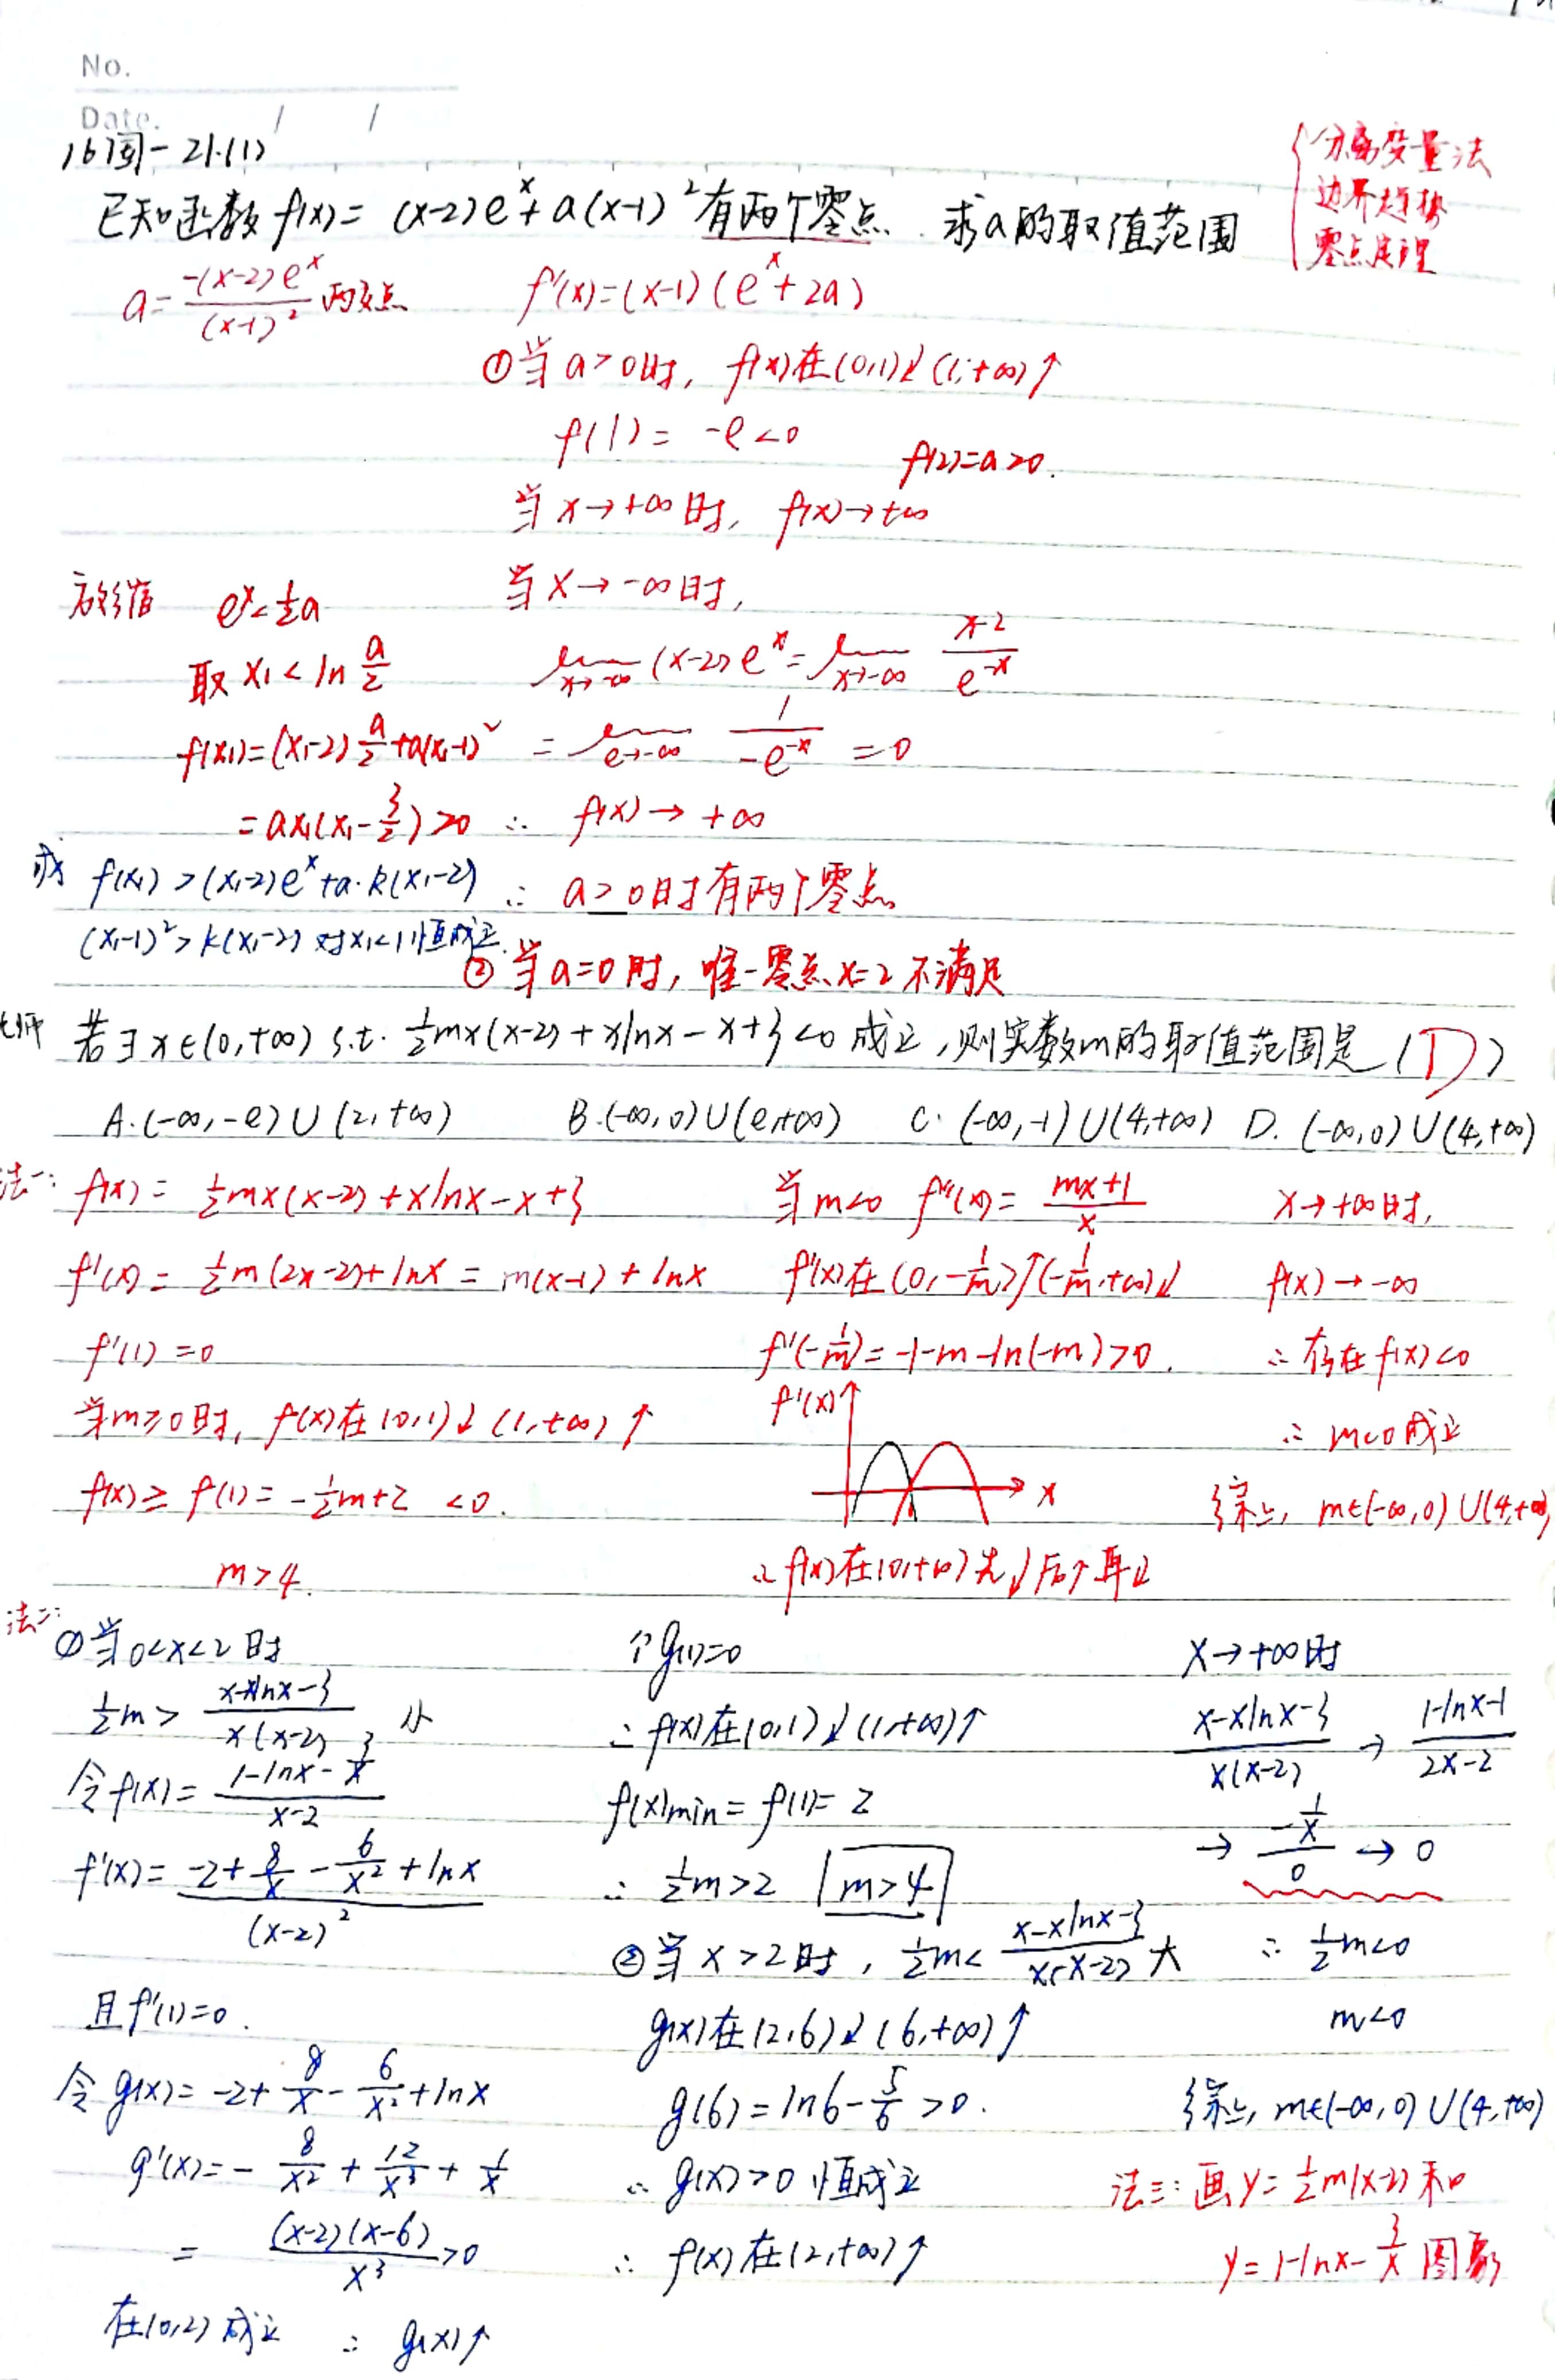 No.
Date. / /
16国I-21.(1)
已知函数 f(x)= (x-2)e^x+a(x-1)^2 有两个零点. 求a的取值范围
分离变量法
边界趋势
零点定理
a= -(x-2)e^x/(x-1)^2 两交点
f'(x)=(x-1)(e^x+2a)
①当 a>0时, f(x)在(0,1)↓(1,+∞)↑
f(1)= -e<0
f(2)=a>0.
当 x→+∞时, f(x)→+∞
当 x→-∞时,
lim x→-∞ (x-2)e^x = lim x→-∞ (x-2)/e^-x
= lim e→-∞ 1/(-e^-x) =0
∴ f(x)→+∞
∴ a>0时有两个零点
e^x<½a
取 x₁<ln a/2
f(x₁)=(x₁-2)a/2+a(x₁-1)^2
=ax₁(x₁-3/2)>0
或 f(x₁)>(x₁-2)e^x+a·k(x₁-2)
(x₁-1)^2>k(x₁-2) 对x₁<1恒成立.
②当a=0时, 唯一零点x=2 不满足
若∃x∈(0,+∞) s.t. ½mx(x-2)+xlnx-x+3<0 成立,则实数m的取值范围是 (D)
A.(-∞,-e)∪(2,+∞) B.(-∞,0)∪(e,+∞) C.(-∞,-1)∪(4,+∞) D.(-∞,0)∪(4,+∞)
法一: f(x)= ½mx(x-2)+xlnx-x+3
f'(x)= ½m(2x-2)+lnx = m(x-1)+lnx
f'(1)=0
当m≥0时, f(x)在(0,1)↓(1,+∞)↑
f(x)≥f(1)=-½m+2 <0.
m>4.
当m<0 f''(x)= (mx+1)/x
f'(x)在(0,-1/m)↑(-1/m,+∞)↓
f'(-1/m)=-1-m-ln(-m)>0.
f'(x)
x
∴f(x)在(0,+∞)先↓后↑再↓
x→+∞时,
f(x)→-∞
∴存在f(x)<0
∴ m<0成立
综上, m∈(-∞,0)∪(4,+∞)
法二: ①当0<x<2时
½m> (x-xlnx-3)/(x(x-2)) 小
令f(x)= (1-lnx-3/x)/(x-2)
f'(x)= (-2+8/x-6/x^2+lnx)/(x-2)^2
且f'(1)=0.
令g(x)=-2+8/x-6/x^2+lnx
g'(x)=-8/x^2+12/x^3+1/x
= (x-2)(x-6)/x^3>0
在(0,2)成立 ∴ g(x)↑
g(1)=0
∴f(x)在(0,1)↓(1,+∞)↑
f(x)min=f(1)=2
∴ ½m>2 m>4
②当x>2时, ½m< (x-xlnx-3)/(x(x-2)) 大
g(x)在(2,6)↓(6,+∞)↑
g(6)=ln6-5/6>0.
∴ g(x)>0 恒成立
∴ f(x)在(2,+∞)↑
x→+∞时
(x-xlnx-3)/(x(x-2)) → (1-lnx-1)/(2x-2)
→ (-1/x)/0 →0
∴ ½m<0
m<0
综上, m∈(-∞,0)∪(4,+∞)
法三: 画y=½m(x-2)和
y=1-lnx-3/x 图象